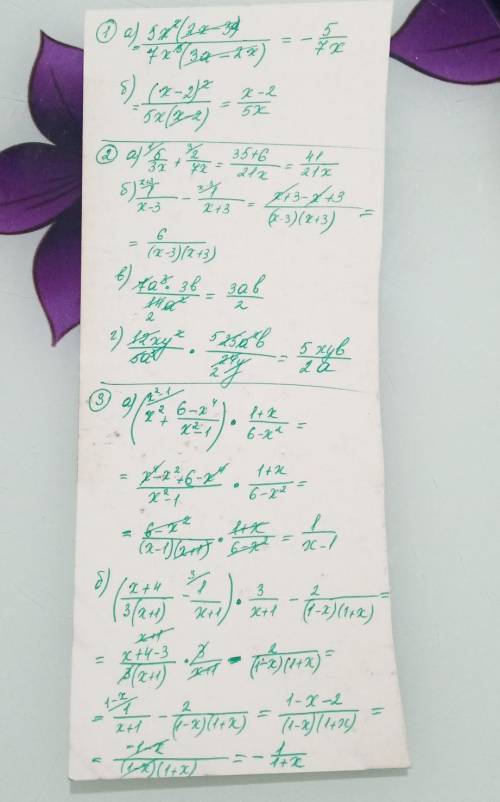 ① а) = 5x²(2x-3a) / 7x³(3a-2x) = - 5/7x
б) = (x-2)² / 5x(x-2) = x-2 / 5x
② а) 5/3x + 2/7x = 35+6 / 21x = 41 / 21x
б) 1/x-3 - 1/x+3 = x+3-x+3 / (x-3)(x+3) =
= 6 / (x-3)(x+3)
в) 7a³ · 3b / 14a² = 3ab / 2
г) 12xy² / 5a³ · 25a²b / 24y = 5xyb / 2a
③ а) (x² + 6-x⁴ / x²-1) · 1+x / 6-x² =
= x⁴-x²+6-x⁴ / x²-1 · 1+x / 6-x² =
= 6-x² / (x-1)(x+1) · 1+x / 6-x² = 1 / x-1
б) (x+4 / 3(x+1) - 1 / x+1) · 3 / x+1 - 2 / (1-x)(1+x) =
= x+4-3 / 3(x+1) · 3 / x+1 - 2 / (1-x)(1+x) =
= 1 / x+1 - 2 / (1-x)(1+x) = 1-x-2 / (1-x)(1+x) =
= -1-x / (1-x)(1+x) = - 1 / 1+x